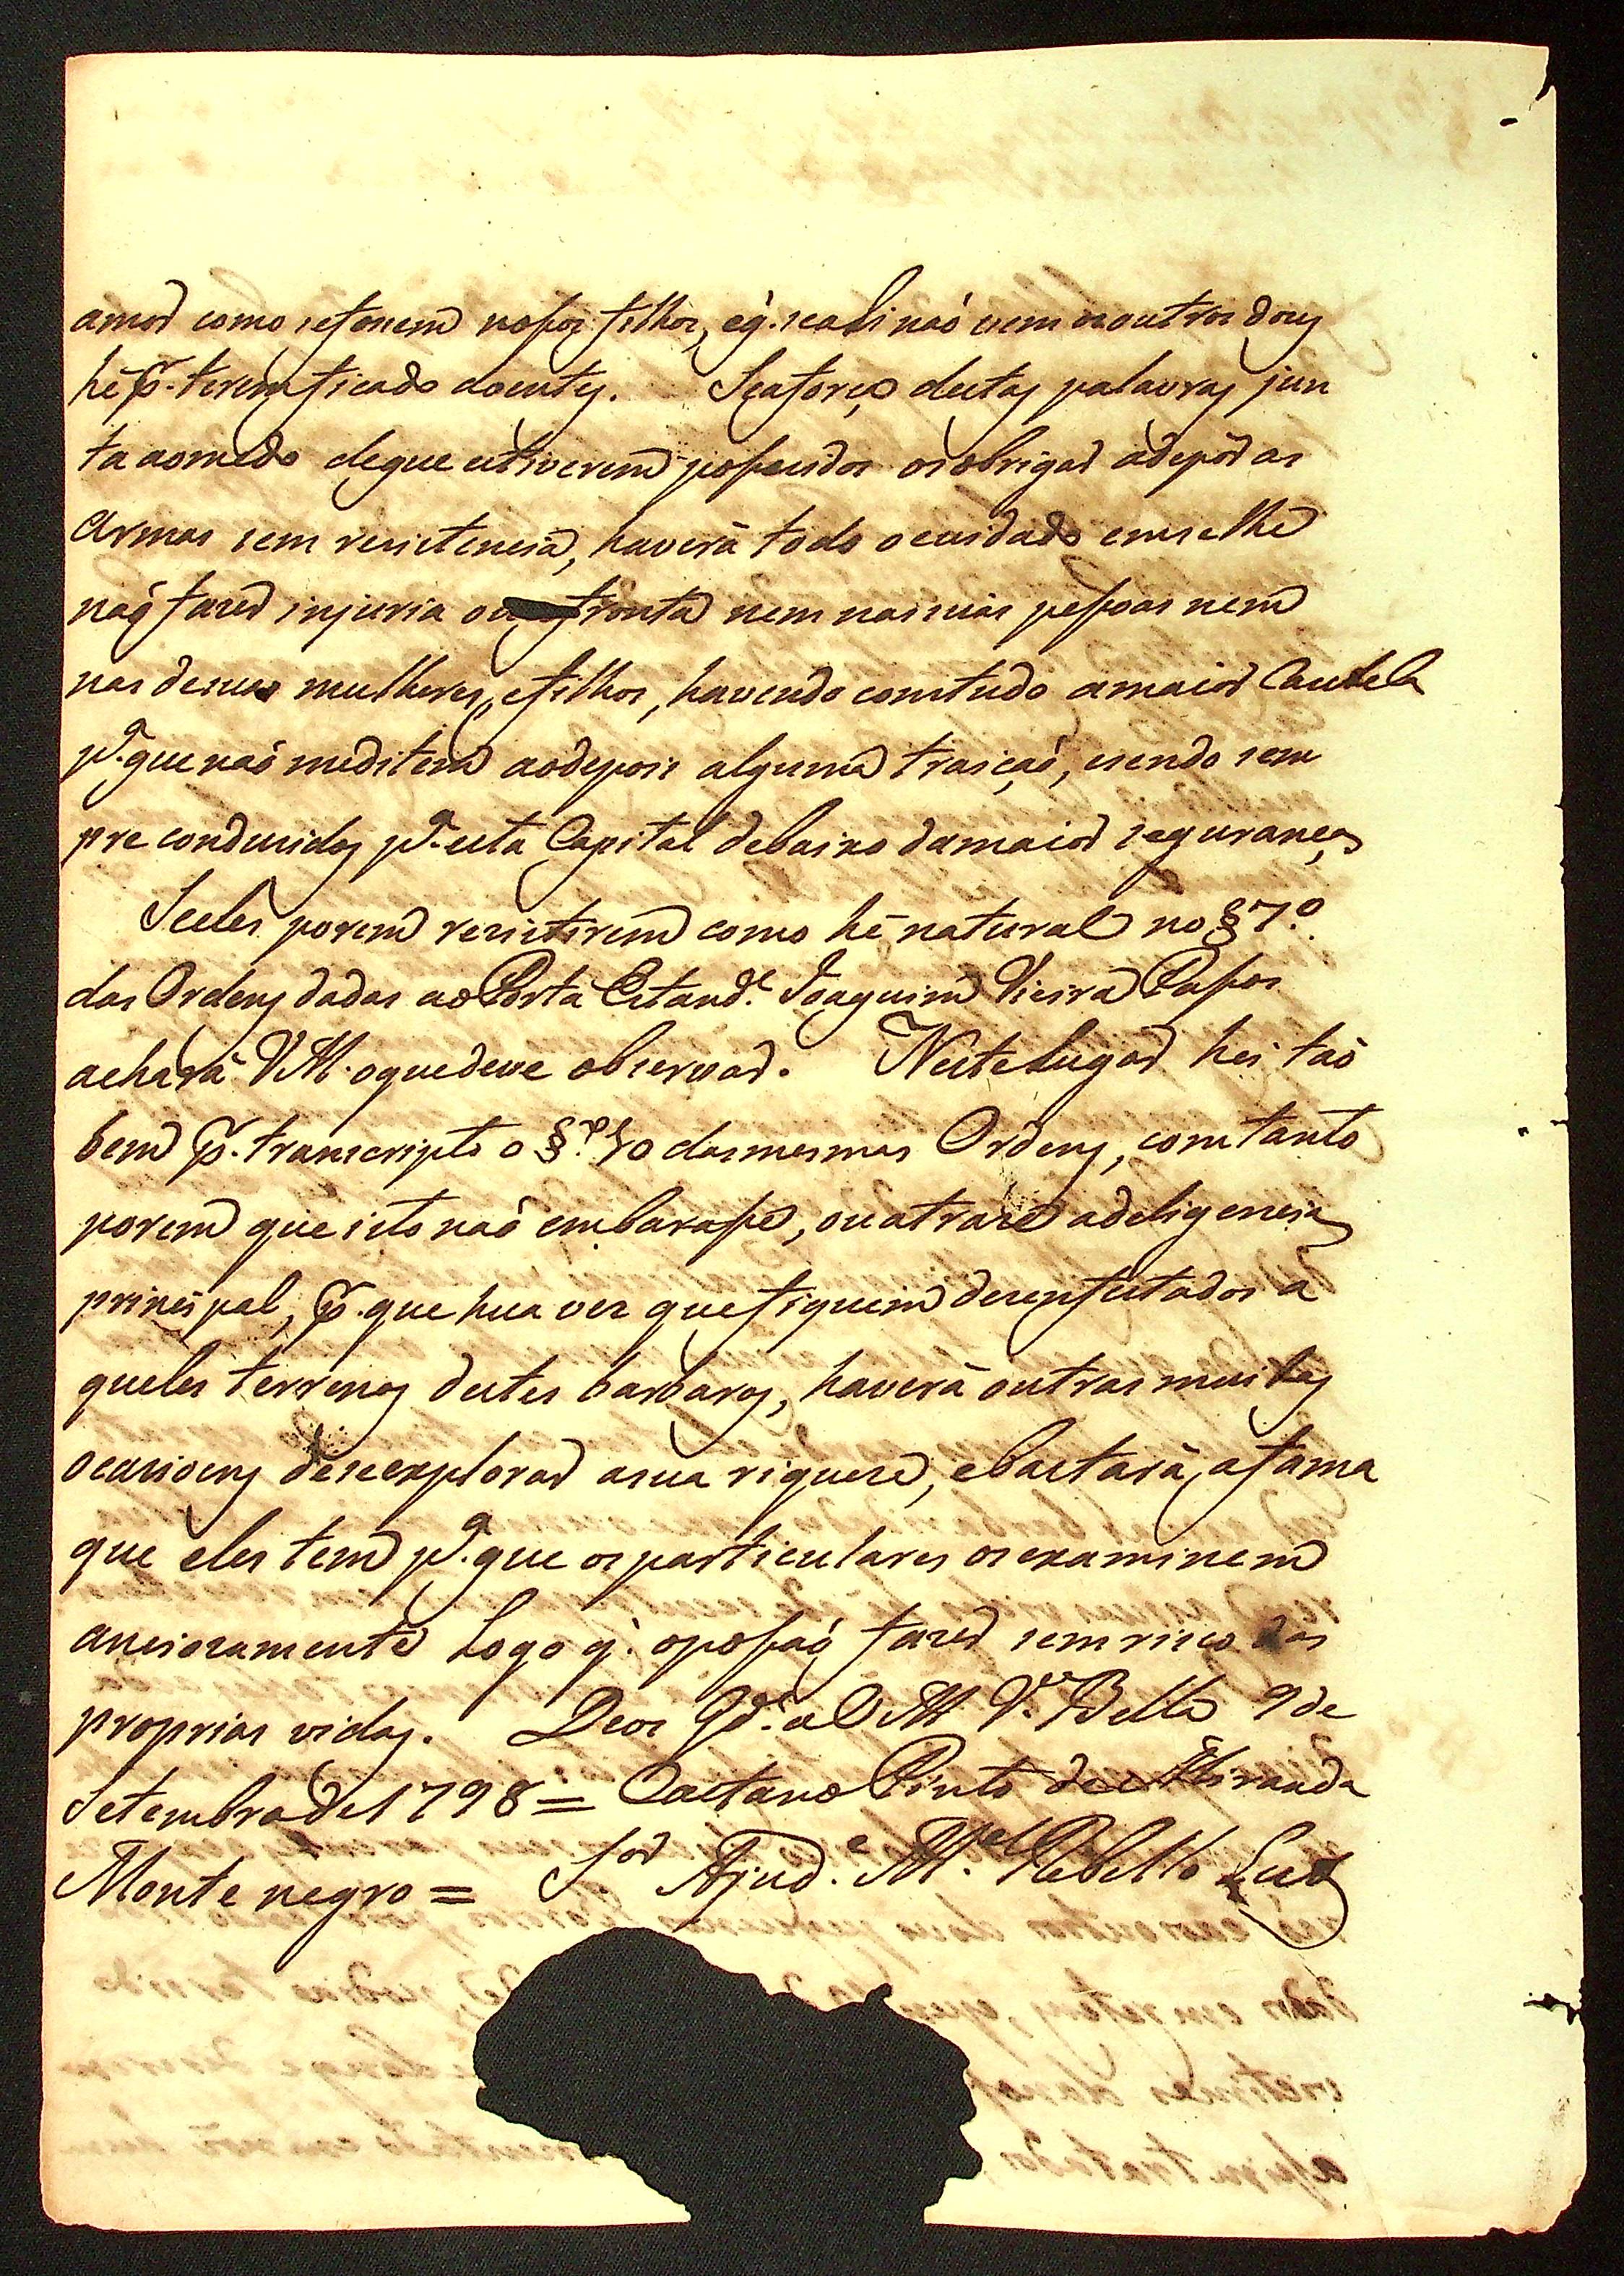 amor como sefosem nosos filhos, eq. seali naõ vem os outros dous
hè p. terem ficado doentes. Seaforça destas palavras jun
ta aomedo deque estiverem posuidos os obrigar adepôr as
Armas sem resistencia, haverà todo ocuidado emselhe
naõ fazer injuria ou afronta nem nas suas pesoas nem
nas desuas mulheres, efilhos, havendo comtudo amaior Cautela
pª. que naõ meditem aodepois alguma traiçaõ, esendo sem
pre condusidos pª. esta Capital debaixo damaior segurança
Seeles porem resistirem como hè natural no § 7.º
das Ordens dadas ao Porta Estand.e Joaquim Vieira Pasos
acharà VM. oquedeve observar. Neste Lugar hei taõ
bem p. transcripto o §.º 10 dasmesmas Ordens, comtanto
porem que isto naõ embarase, ou atraze adeligencia
principal, p. que hua vez quefiquem desenfestados a
queles terrenos destes barbaros, haverà outras muitas
ocasioens deseexplorar asua riqueza, ebastarà, afama
que eles tem pª. que os particulares os examinem
anciozamente Logo q. oposaõ fazer sem risco das
proprias vidas. Deos Gd.e a VM Vª. Bella 9 de
Setembro de 1798 = Caetano Pinto de Miranda
Monte negro = S.or Ajud.e M.el Rebello Leite